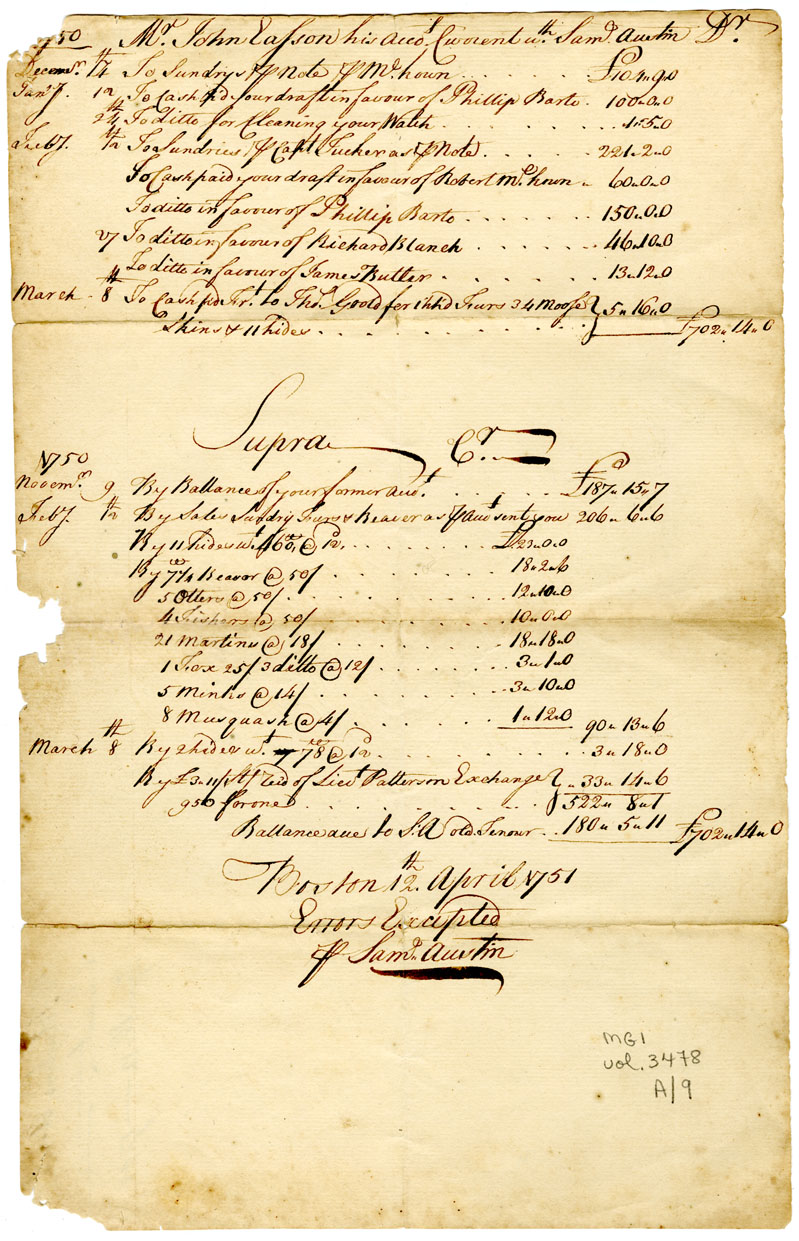 1750 Mr. John Easson his Accot. Currant wth. Saml. Austin Dr.
Decemr. 14 To Sundrys ꝑ Note ꝑ Mc.hown . . . . £104„9„0
Janry. 12 To Cash pd. your draft in favour of Phillip Barto . 100„0„0
24th To ditto for Cleaning your Watch . . . . 1„5„0
Feby. 12th To Sundries ꝑ Capt. Tucker as ꝑ Note . . . . 221„2„0
To Cash paid your draft in favour of Robert Mc.hown „ 60„0„0
To ditto in favour of Phillip Barto . . . . 150„0„0
27 To ditto in favour of Richard Blanch . . . . 46„10„0
To ditto in favour of James Butler . . . . 13„12„0
March 8th To Cash pd. Frt. to Thos. Goold for 1 hhd Furs 34 Moose } 5„16„0
Skins & 11 hides . . . . £702„14„0
Supra Cr.
1750
Novemr. 9 By Ballance of your former Acct. . . . . £187„15„7
Feby. 12th By Sales Sundry Furs & Beaver as ꝑ Acct. sent you 206„6„6
By 11 hides wt. 460, @ 12d. . . . . £23„0„0
By 7 1/4 Beavor @ 50/ . . . . 18„2„6
5 Otters @ 50/ . . . . 12„10„0
4 Fishers @ 50/ . . . . 10„0„0
21 Martins @ 18/ . . . . 18„18„0
1 Fox 25/ 3 ditto @ 12/ . . . . 3„1„0
5 Minks @ 14/ . . . . 3„10„0
8 Musquash @ 4/ . . . . 1„12„0 90„13„6
March 8th By 2 hides wt. 78 @ 12d . . . . 3„18„0
By £3„11/ Stg recd of Lieut Patterson Exchange } „33„14„6
950 for one . . . . 522„8„1
Ballance due to S:A old Tenour . . 180„5„11 £702„14„0
Boston 12th. April 1751
Errors Excepted
ꝑ Saml. Austin
MG1
vol. 3478
A/9